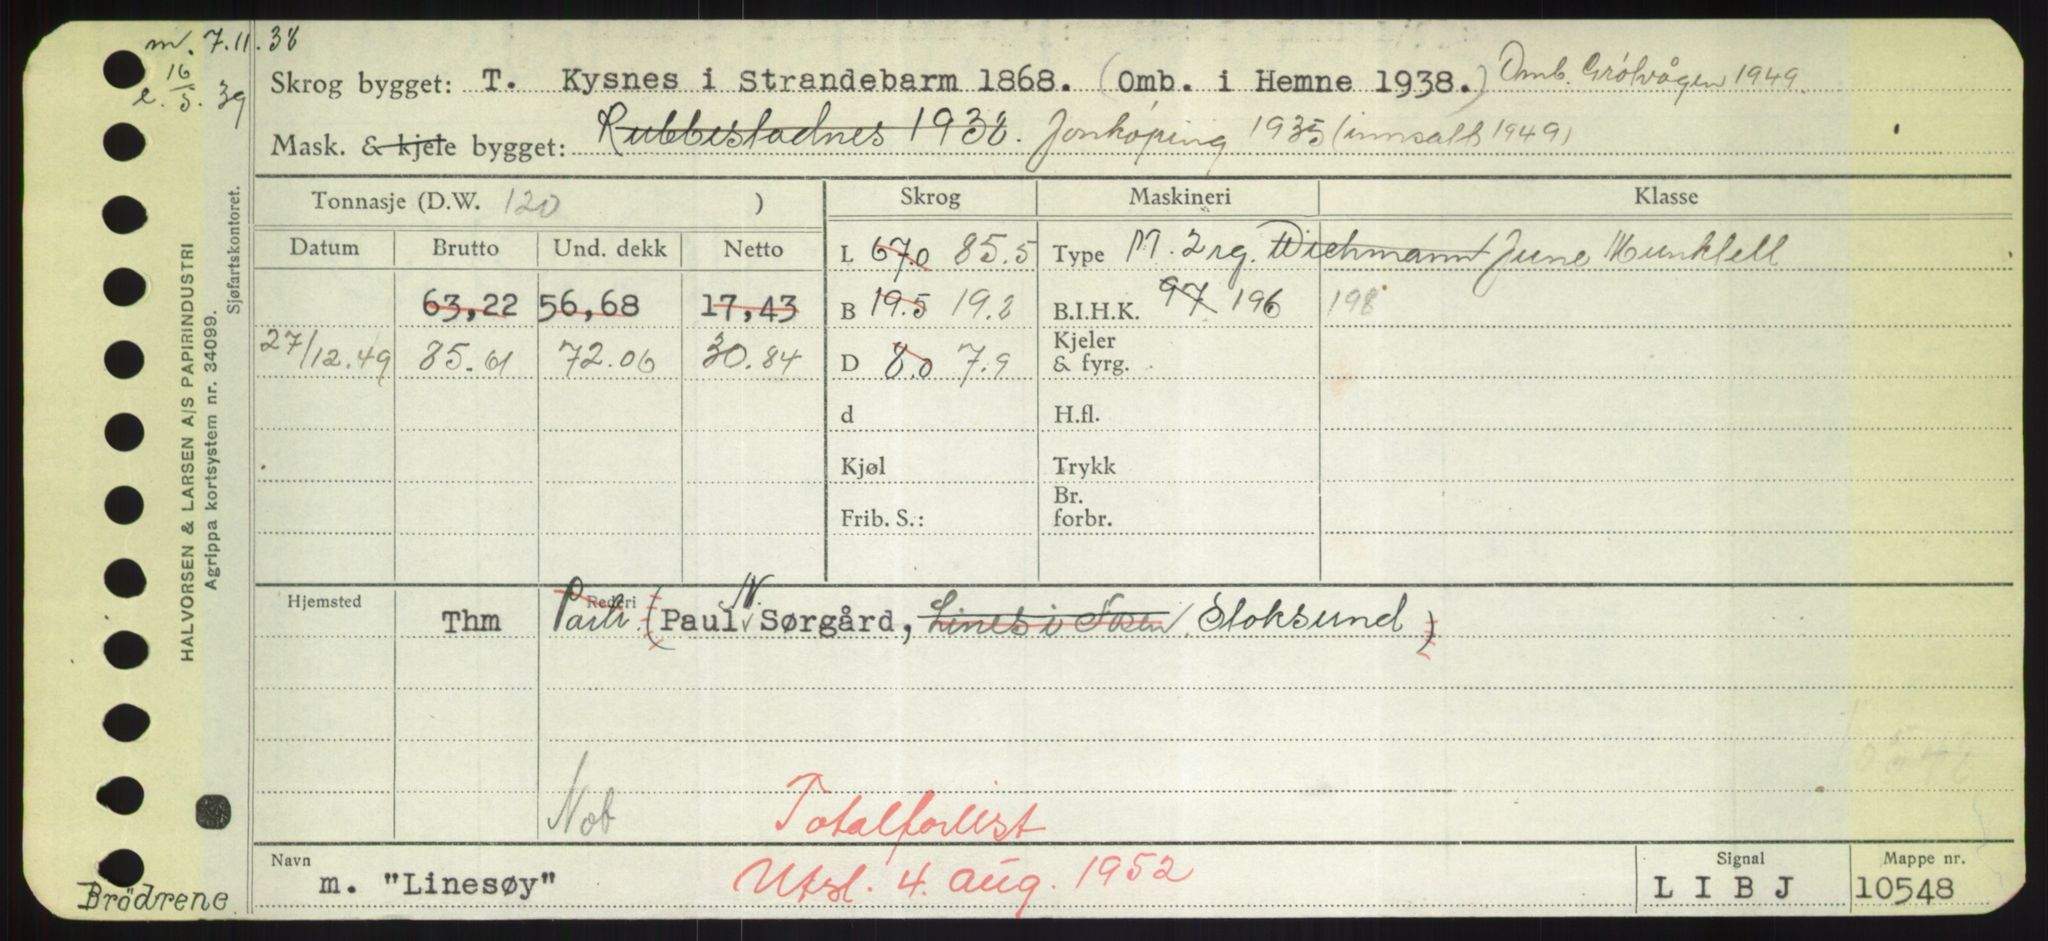 m. 7.11.38
e. 16/5. 39
Skrog bygget: T. Kysnes i Strandebarm 1868. (Omb. i Hemne 1938.) Omb. Grölvågen 1949.
Mask. & kjele bygget: Rubbestadnes 1938. Jonköping 1935 (innsatt 1949)
Tonnasje (D.W. 120 ) Skrog Maskineri Klasse
Datum Brutto Und. dekk Netto L 67.0 85.5 Type M. 2 sg. Wichmann June Munktell
63,22 56,68 17,43 B 19.5 19.2 B.I.H.K. 97 196 198
27/12.49 85.61 72.06 30.84 D 8.0 7.9 Kjeler & fyrg.
d H.fl.
Kjøl Trykk
Frib. S.: Br. forbr.
Hjemsted Rederi
Thm Partr. (Paul N. Sørgård, Lines i Fosen, Stoksund)
Nob Totalforlist
Navn m. "Linesøy" Utsl. 4. aug. 1952 Signal LIBJ Mappe nr. 10548
Brödrene
HALVORSEN & LARSEN A/S PAPIRINDUSTRI
Agrippa kortsystem nr. 34099.
Sjøfartskontoret.